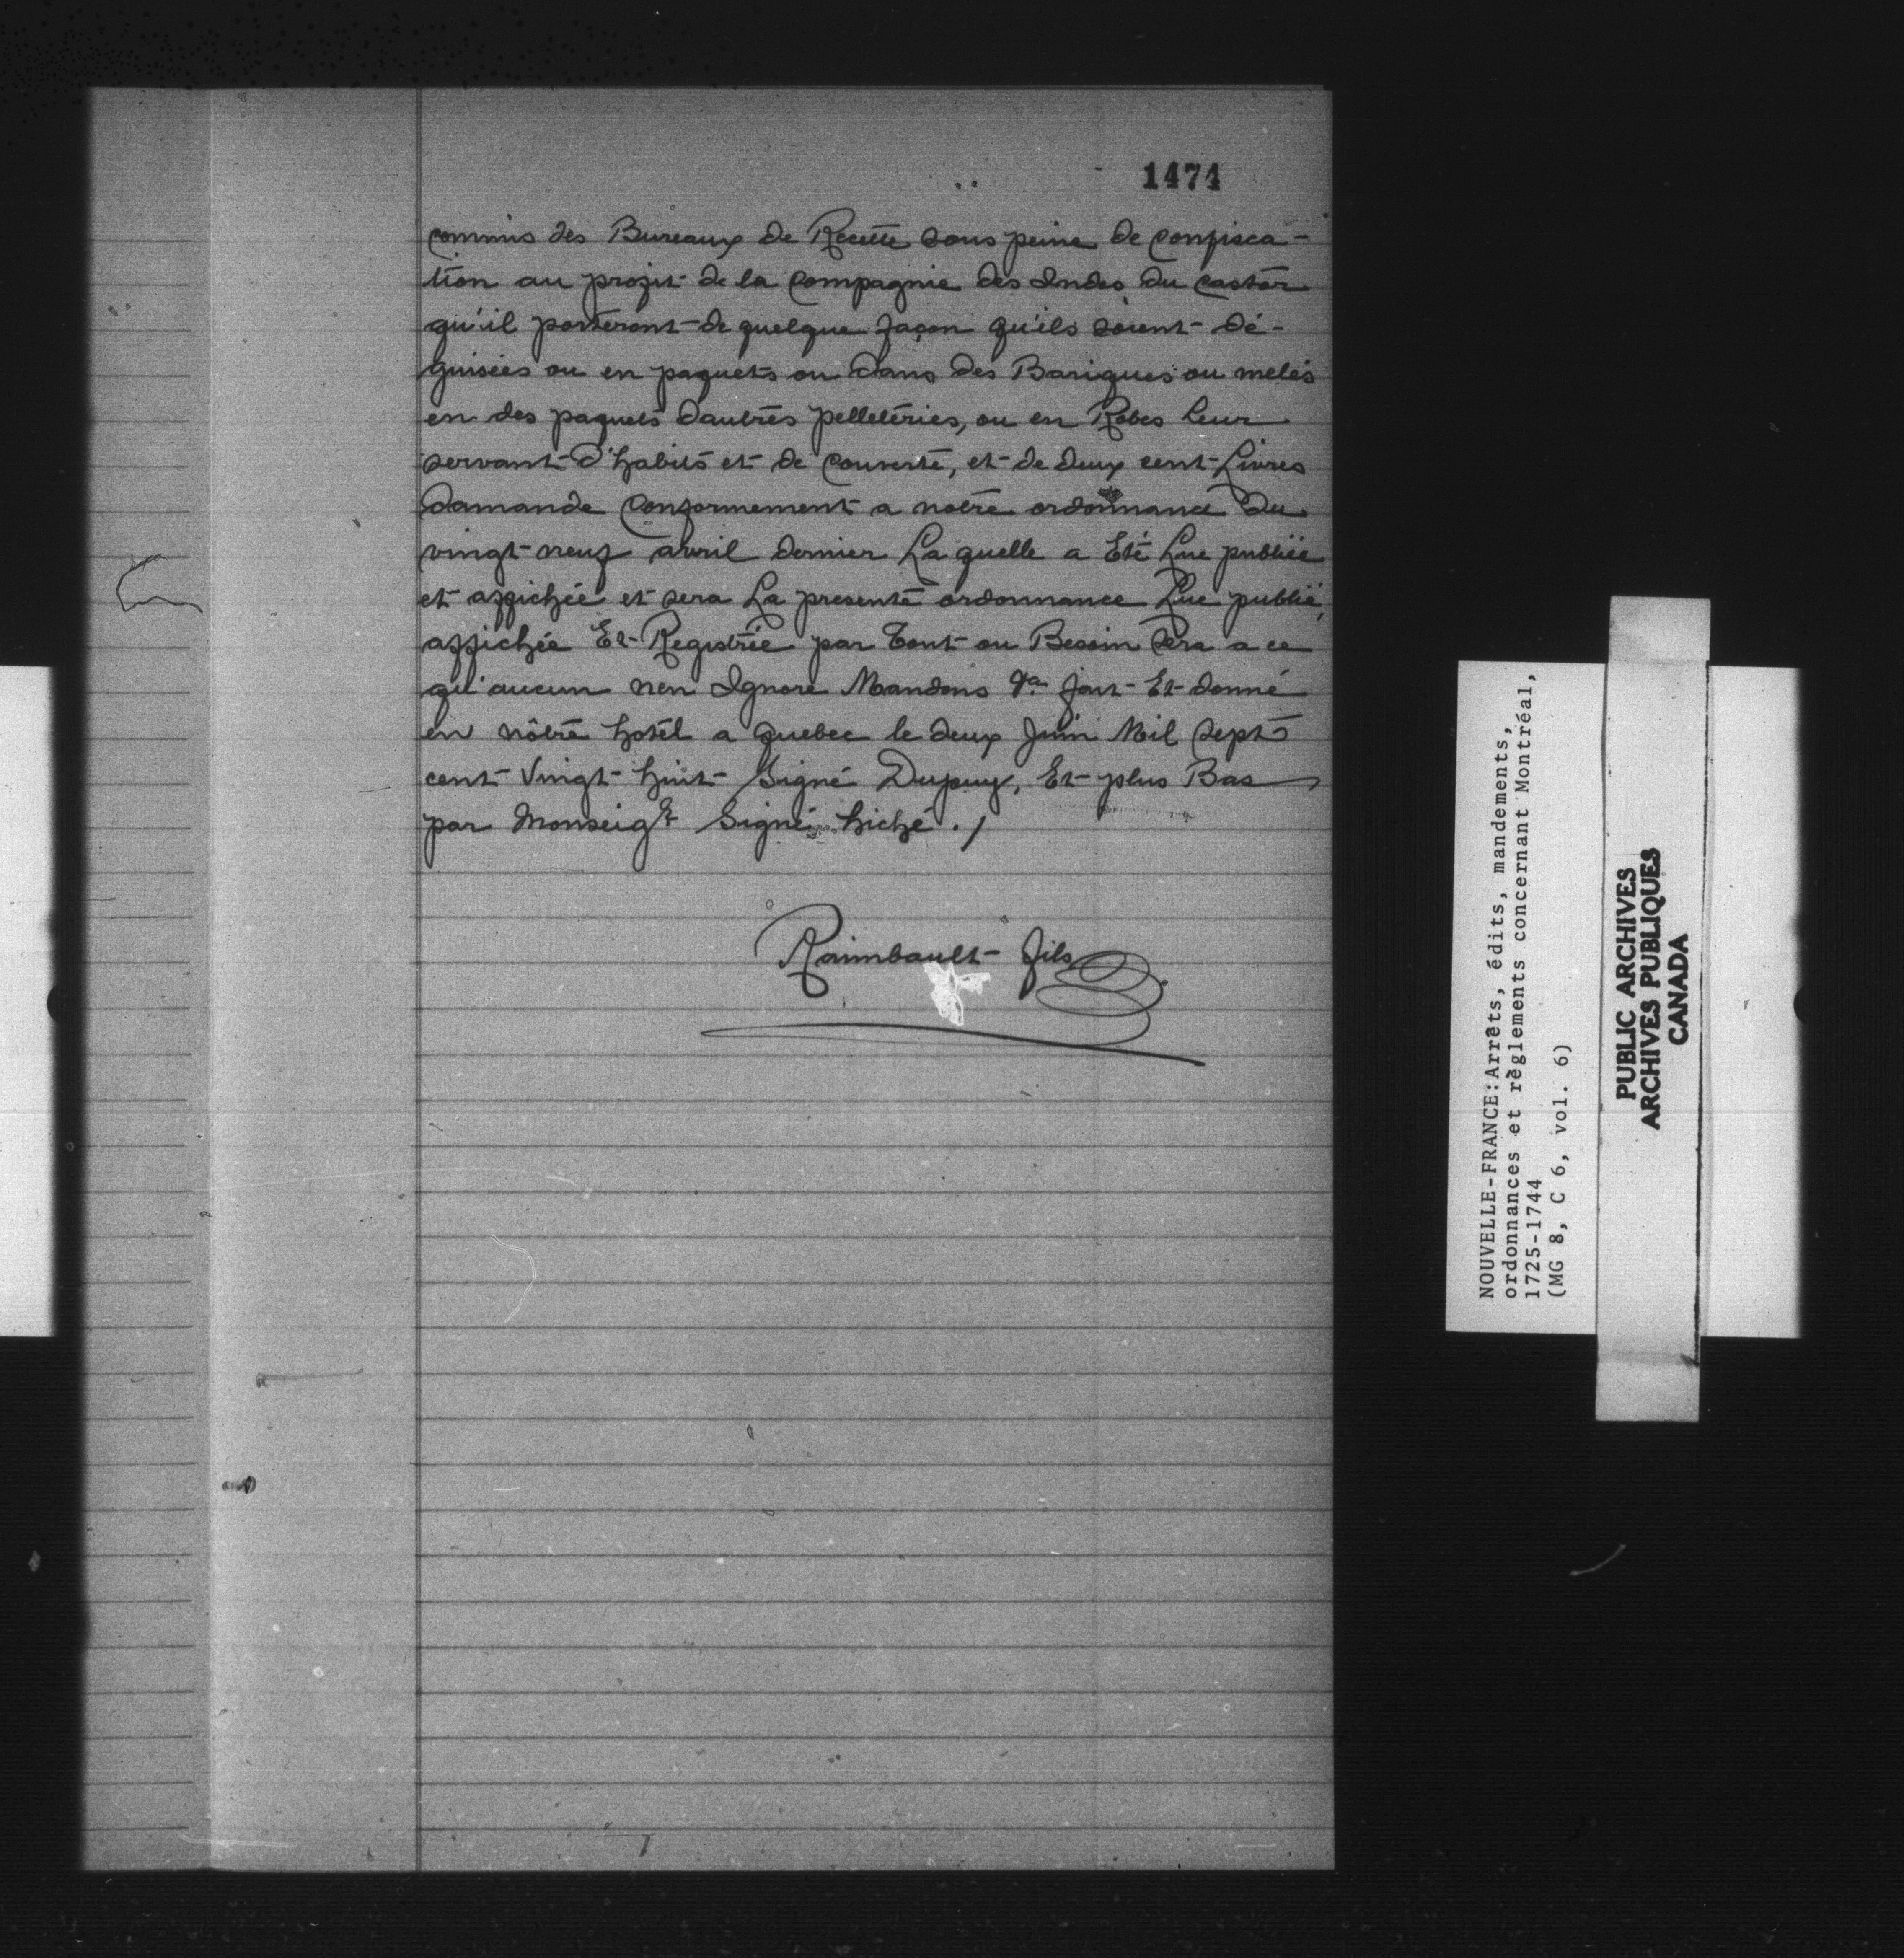 1474
commis des Bureaux de Recette sous peine de confisca-
tion au profit de la Compagnie des Indes du Castor
qu'il porteront de quelque façon qu'ils soient dé-
guisées ou en paquets ou dans des Bariques ou melés
en des paquets dautres pelleteries, ou en Robes Leur
servant d'habits et de couverte, et de deux cent Livres
damande conformement a notre ordonnance du
vingt neuf avril dernier La quelle a Eté Lue publiée
et affichée et sera La presente ordonnance Lue publié,
affichée Et Registrée par Tout ou Besoin Sera a ce
qu'aucun nen Ignore Mandons &a fait Et donné
en nôtre hotel a quebec le deux Juin Mil Sept
cent Vingt huit Signé Dupuy, Et plus Bas
par Monseigr Signé hiché ./
Raimbault fils
NOUVELLE-FRANCE:Arrêts, édits, mandements,
ordonnances et règlements concernant Montréal,
1725-1744
(MG 8, C 6, vol. 6)
PUBLIC ARCHIVES
ARCHIVES PUBLIQUES
CANADA